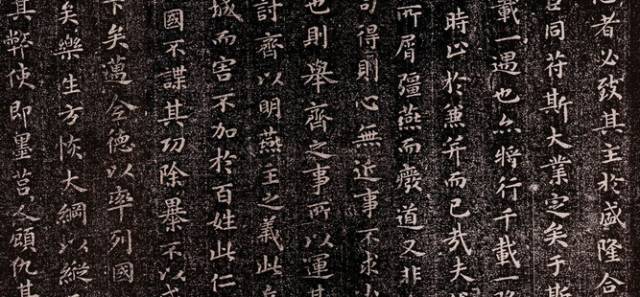 者必致其主於盛隆合
同符斯大業定矣于斯
載一遇也亦將行千載一
時止於兼并而已哉夫
所屑彊燕而廢道又非
苟得則心無近事不求小
也則舉齊之事所以運其
討齊以明燕主之義此兵
城而害不加於百姓此仁
國不謀其功除暴不以威
下矣邁全德以率列國
矣樂生方恢大綱以縱
其弊使即墨莒人顧仇其